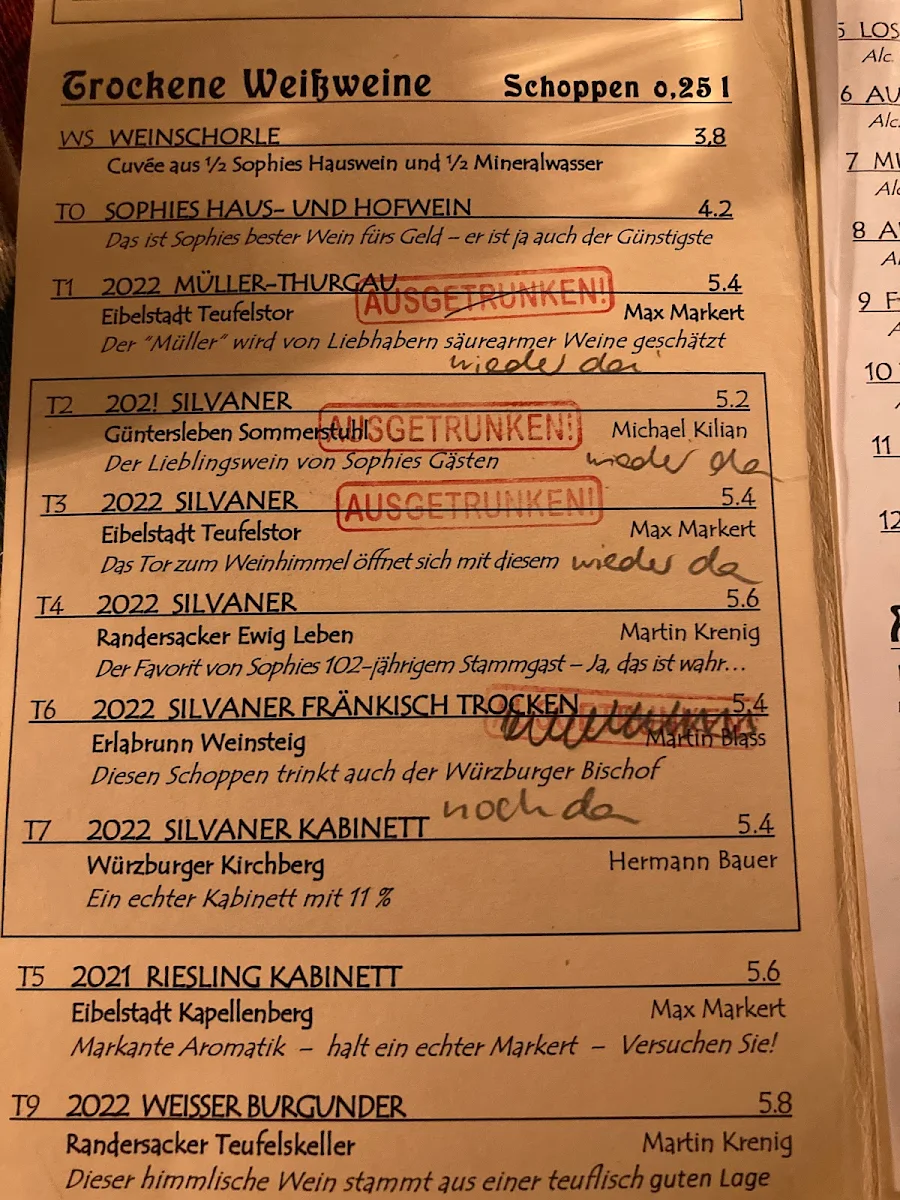 Trockene Weißweine Schoppen 0,25 l
WS WEINSCHORLE 3,8
Cuvée aus ½ Sophies Hauswein und ½ Mineralwasser
TO SOPHIES HAUS- UND HOFWEIN 4.2
Das ist Sophies bester Wein fürs Geld – er ist ja auch der Günstigste
T1 2022 MÜLLER-THURGAU 5.4
AUSGETRUNKEN!
Eibelstadt Teufelstor Max Markert
Der "Müller" wird von Liebhabern säurearmer Weine geschätzt
wieder da
T2 202! SILVANER 5.2
AUSGETRUNKEN!
Güntersleben Sommerstuhl Michael Kilian
Der Lieblingswein von Sophies Gästen wieder da
T3 2022 SILVANER 5.4
AUSGETRUNKEN!
Eibelstadt Teufelstor Max Markert
Das Tor zum Weinhimmel öffnet sich mit diesem wieder da
T4 2022 SILVANER 5.6
Randersacker Ewig Leben Martin Krenig
Der Favorit von Sophies 102-jährigem Stammgast – Ja, das ist wahr...
T6 2022 SILVANER FRÄNKISCH TROCKEN 5.4
Erlabrunn Weinsteig Martin Blass
Diesen Schoppen trinkt auch der Würzburger Bischof
noch da
T7 2022 SILVANER KABINETT 5.4
Würzburger Kirchberg Hermann Bauer
Ein echter Kabinett mit 11 %
T5 2021 RIESLING KABINETT 5.6
Eibelstadt Kapellenberg Max Markert
Markante Aromatik – halt ein echter Markert – Versuchen Sie!
T9 2022 WEISSER BURGUNDER 5.8
Randersacker Teufelskeller Martin Krenig
Dieser himmlische Wein stammt aus einer teuflisch guten Lage
5 LOS
Alc.
6 AU
Alc.
7 M
Al
8 A
Al
9 F
10
11
12